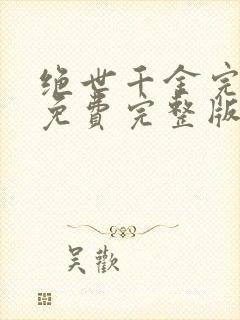 绝世千金完
免費完整版
吴歡